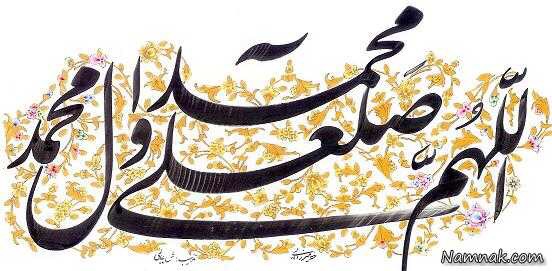 اللّهمّ صل علی محمد وآل محمد
Namnak.com